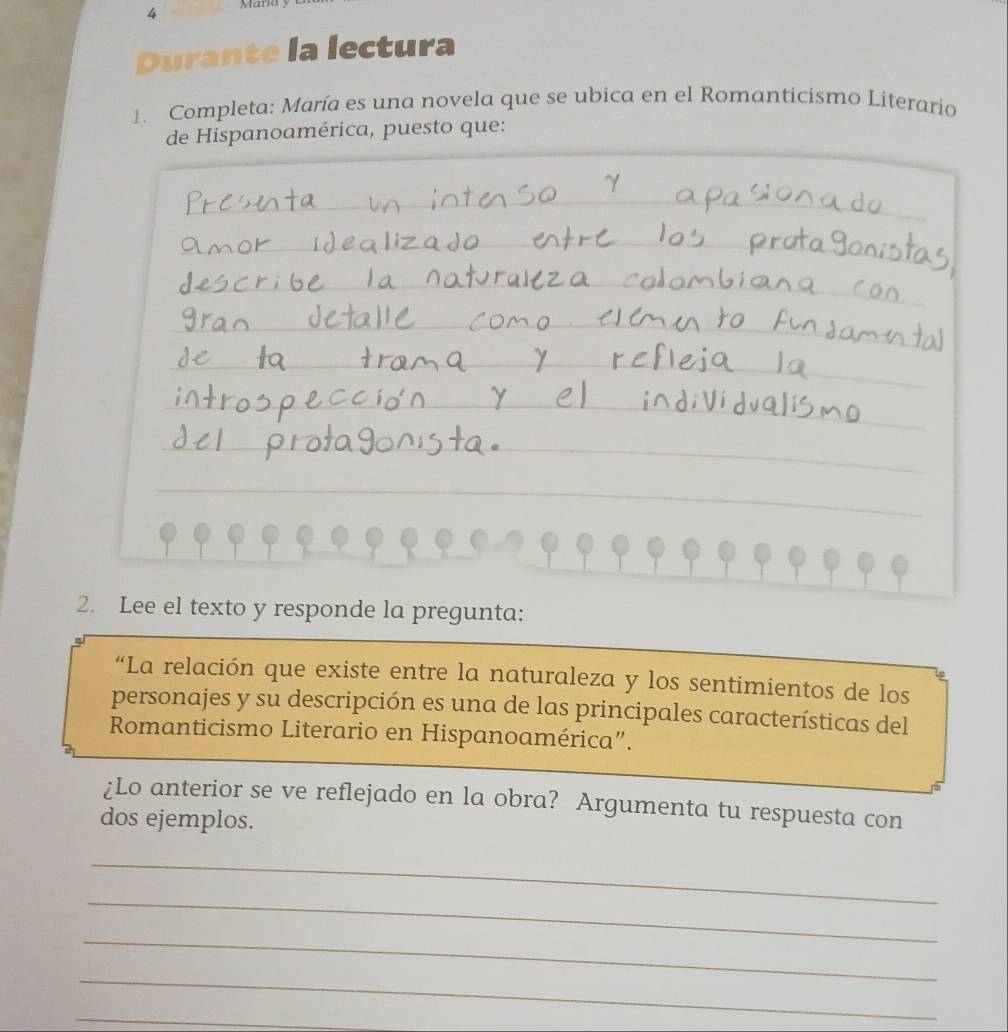 4
Durante la lectura
1. Completa: María es una novela que se ubica en el Romanticismo Literario
de Hispanoamérica, puesto que:
Presenta un intenso y apasionado
amor idealizado entre los protagonistas,
describe la naturaleza colombiana con
gran detalle como elemento fundamental
de la trama y refleja la
introspección y el individualismo
del protagonista.
2. Lee el texto y responde la pregunta:
“La relación que existe entre la naturaleza y los sentimientos de los
personajes y su descripción es una de las principales características del
Romanticismo Literario en Hispanoamérica”.
¿Lo anterior se ve reflejado en la obra? Argumenta tu respuesta con
dos ejemplos.